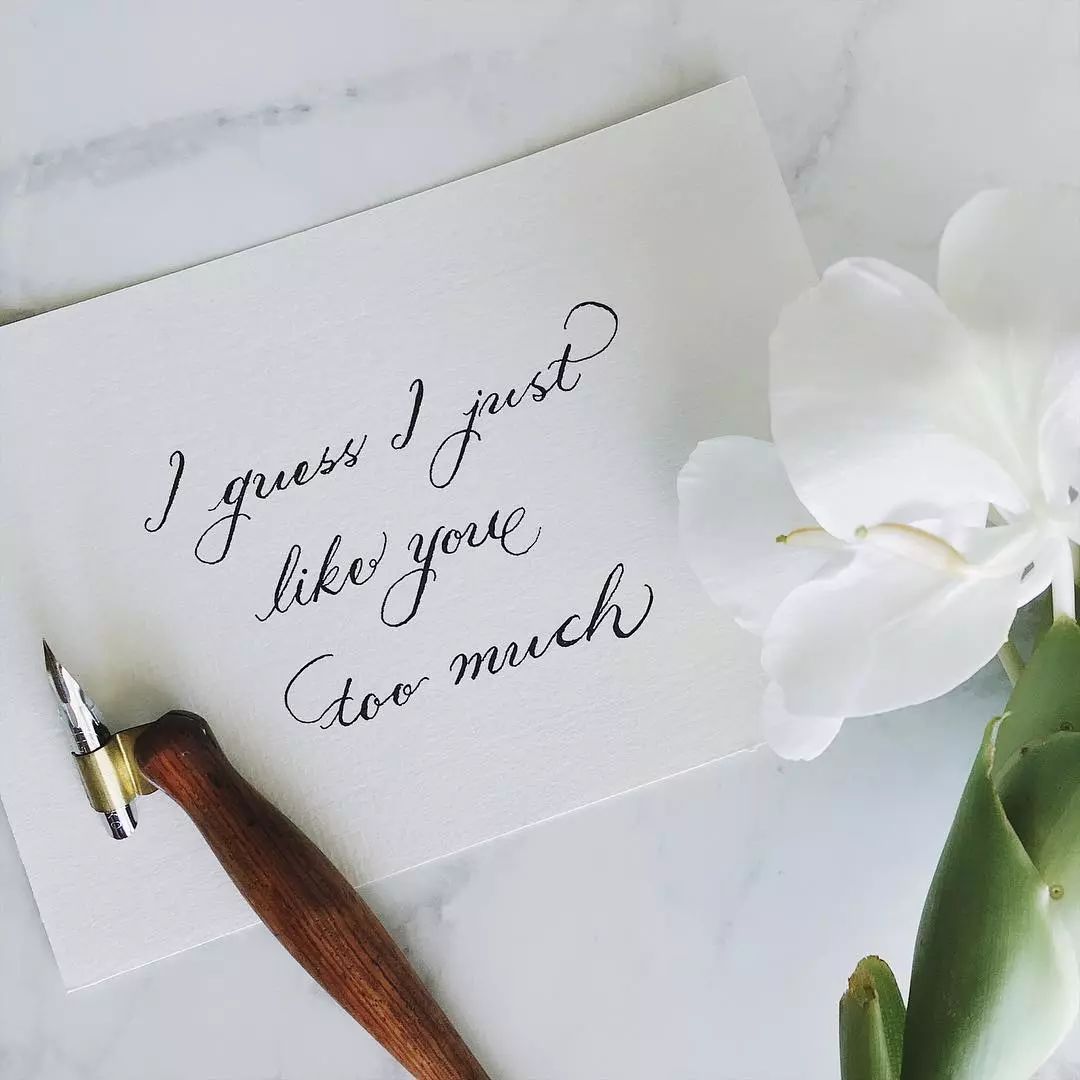 I guess I just
like you
too much